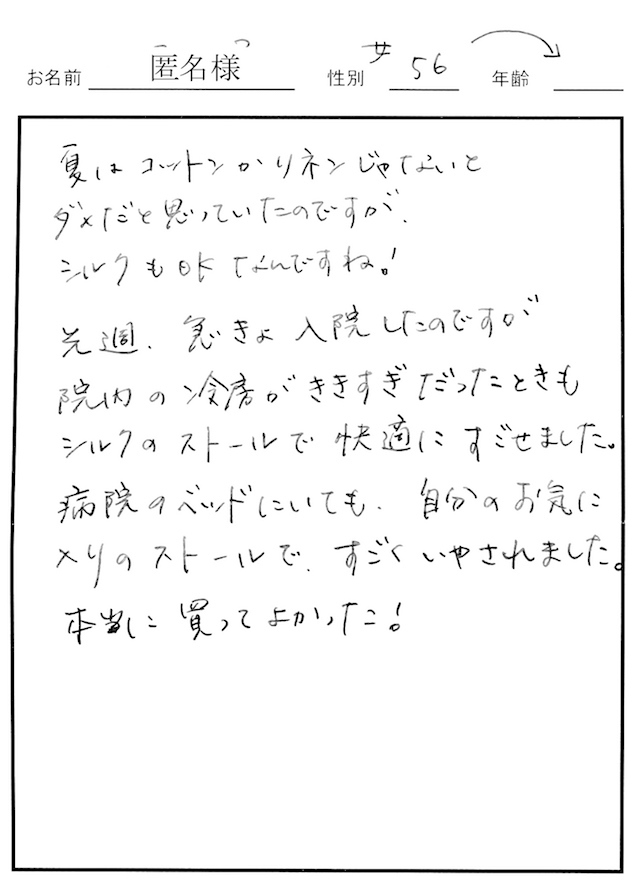 お名前 匿名様 性別 女 56 年齢
夏はコットンかリネンじゃないと
ダメだと思っていたのですが、
シルクもOKなんですね!
先週、急きょ入院したのですが
院内の冷房がききすぎだったときも
シルクのストールで快適にすごせました。
病院のベッドにいても、自分のお気に
入りのストールで、すごくいやされました。
本当に買ってよかった!